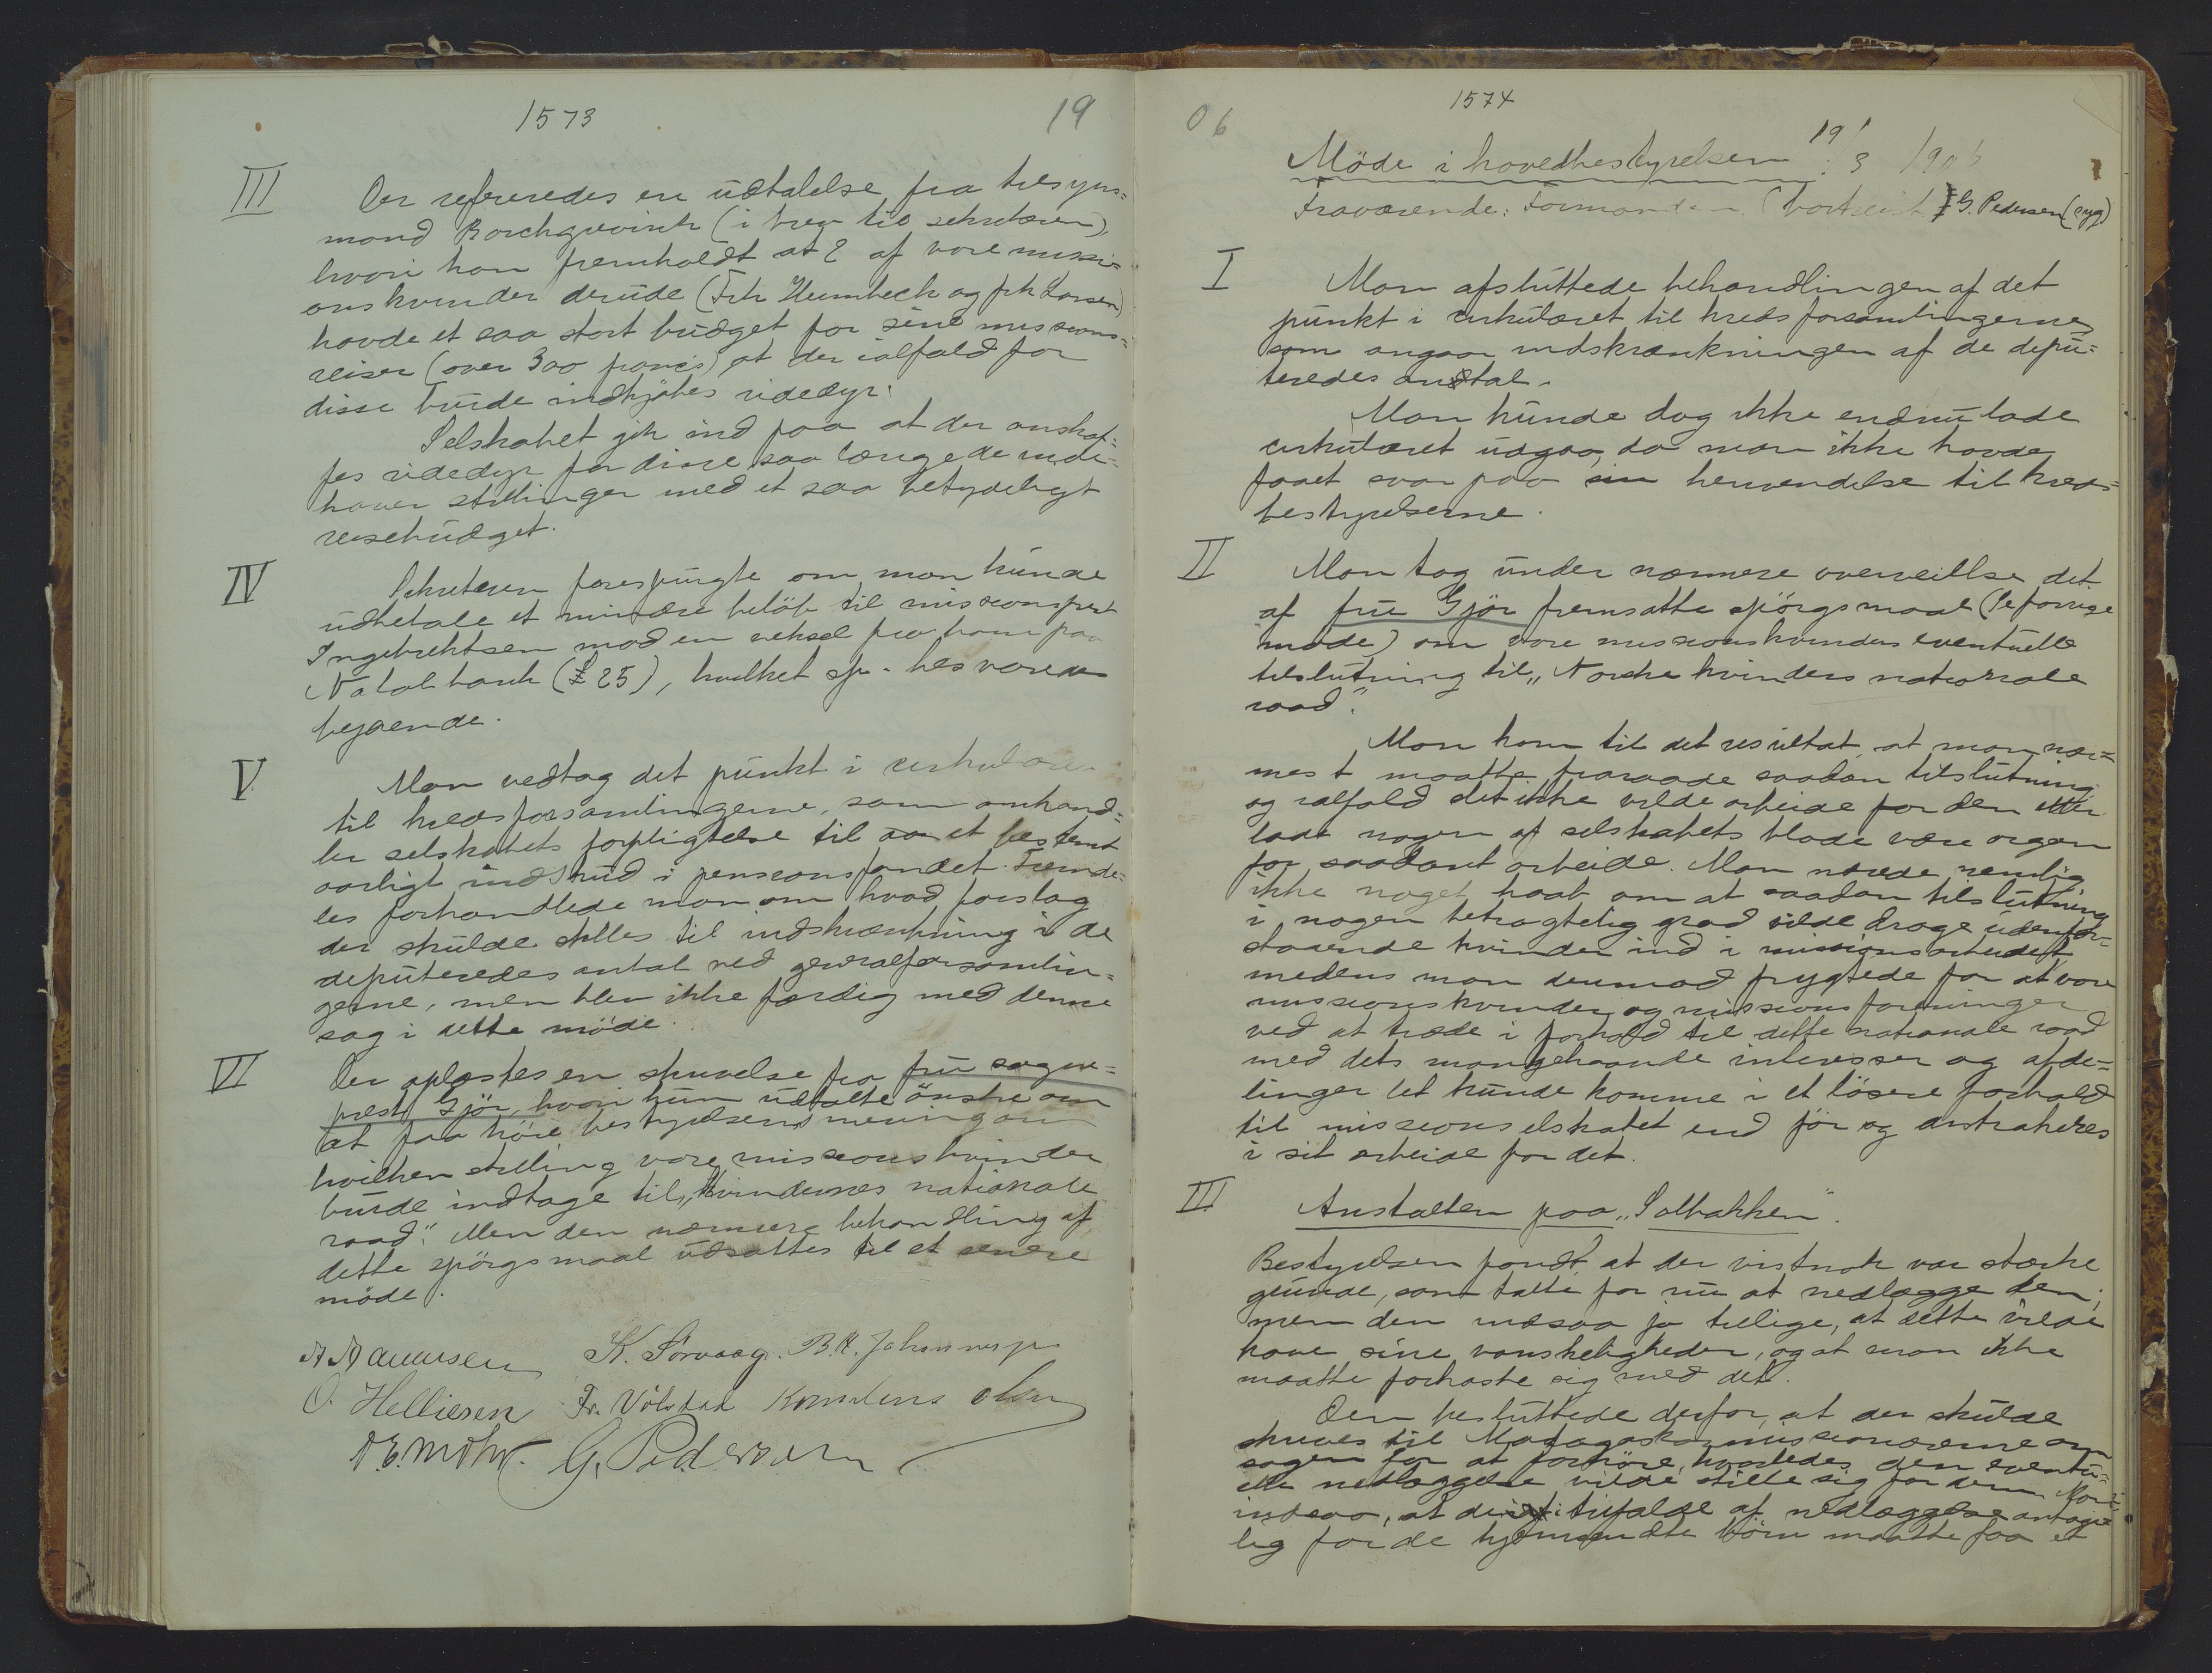 1573
19
III
Der refereredes en udtalelse fra tilsyns=
mand Borchgrevink (i brev til sekretæren),
hvori han fremholdt at 2 af vore missi=
onskvinder derude (Frk Heimbeck og frk Larsen)
havde et saa stort budget for sine missions=
reiser (over 300 francs) at der ialfald for
disse burde indkjøbes ridedyr.
Selskabet gik ind paa at der anskaf=
fes ridedyr for disse saa længe de inde=
haver stillinger med et saa betydeligt
reisebudget.
IV
Sekretæren forespurgte om man kunde
udbetale et mindre beløb til missionsprest
Ingebrektsen mod en veksel fra ham paa
Natal bank (£ 25), hvilket sp. besvaredes
bejaende.
V.
Man vedtog det punkt i cirkulæret
til kredsforsamlingerne, som omhand=
ler selskabets forpligtelse til et bestemt
aarligt indskud i pensionsfondet. Fremde=
les forhandlede man om hvad forslag
der skulde stilles til indskrænkning i de
deputeredes antal ved generalforsamlin=
gerne, men blev ikke færdig med denne
sag i dette møde.
VI
Der oplæstes en skrivelse fra fru sogne=
prest Gjør, hvori hun udtalte ønske om
at faa høre bestyrelsens mening om
hvilken stilling vore missionskvinder
burde indtage til "Kvindernes nationale
raad". Men den nærmere behandling af
dette spörgsmaal udsattes til et senere
møde.
K. Sørvaag. B.K. Johannesen
O. Helliesen Fr. Völstad
G. Pedersen
06
1574
Möde i hovedbestyrelsen 19/3 1906
Fraværende: Formanden (bortreist) G. Pedersen (syg)
I
Man afsluttede behandlingen af det
punkt i cirkulæret til kredsforsamlingerne,
som angaar indskrænkningen af de depu=
teredes antal.
Man kunde dog ikke endnu lade
cirkulæret udgaa, da man ikke havde
faaet svar paa sin henvendelse til kreds=
bestyrelserne.
II
Man tog under nærmere overveielse det
af fru Gjör fremsatte spörgsmaal (Se forrige
møde) om vore missionskvinders eventuelle
tilslutning til "Norske kvinders nationale
raad".
Man kom til det resultat, at man nær=
mest maatte fraraade saadan tilslutning
og ialfald det ikke vilde arbeide for den eller
lade nogen af selskabets blade være organ
for saadant arbeide. Man nærede nemlig
ikke noget haab om at saadan tilslutning
i nogen betragtelig grad vilde drage udenfor=
staaende kvinder ind i missionsarbeidet,
medens man derimod frygtede for at vore
missionskvinder og missionsforeninger
ved at træde i forhold til dette nationale raad
med dets mangehaande interesser og afde=
linger let kunde komme i et løsere forhold
til missionsselskabet end för og distraheres
i sit arbeide for det.
III
Anstalten paa "Solbakken".
Bestyrelsen fandt at der vistnok var stærke
grunde, som talte for nu at nedlægge den;
men den indsaa jo tillige, at dette vilde
have sine vanskeligheder, og at man ikke
maatte forhaste sig med det.
Den besluttede derfor, at der skulde
skrives til Madagaskarmissionærerne om
sagen for at forhöre, hvorledes den eventu=
elle nedlæggelse vilde stille sig for dem. Man
indsaa, at der i tilfælde af nedlæggelse antage=
lig for de hjemsendte börn maatte faa et